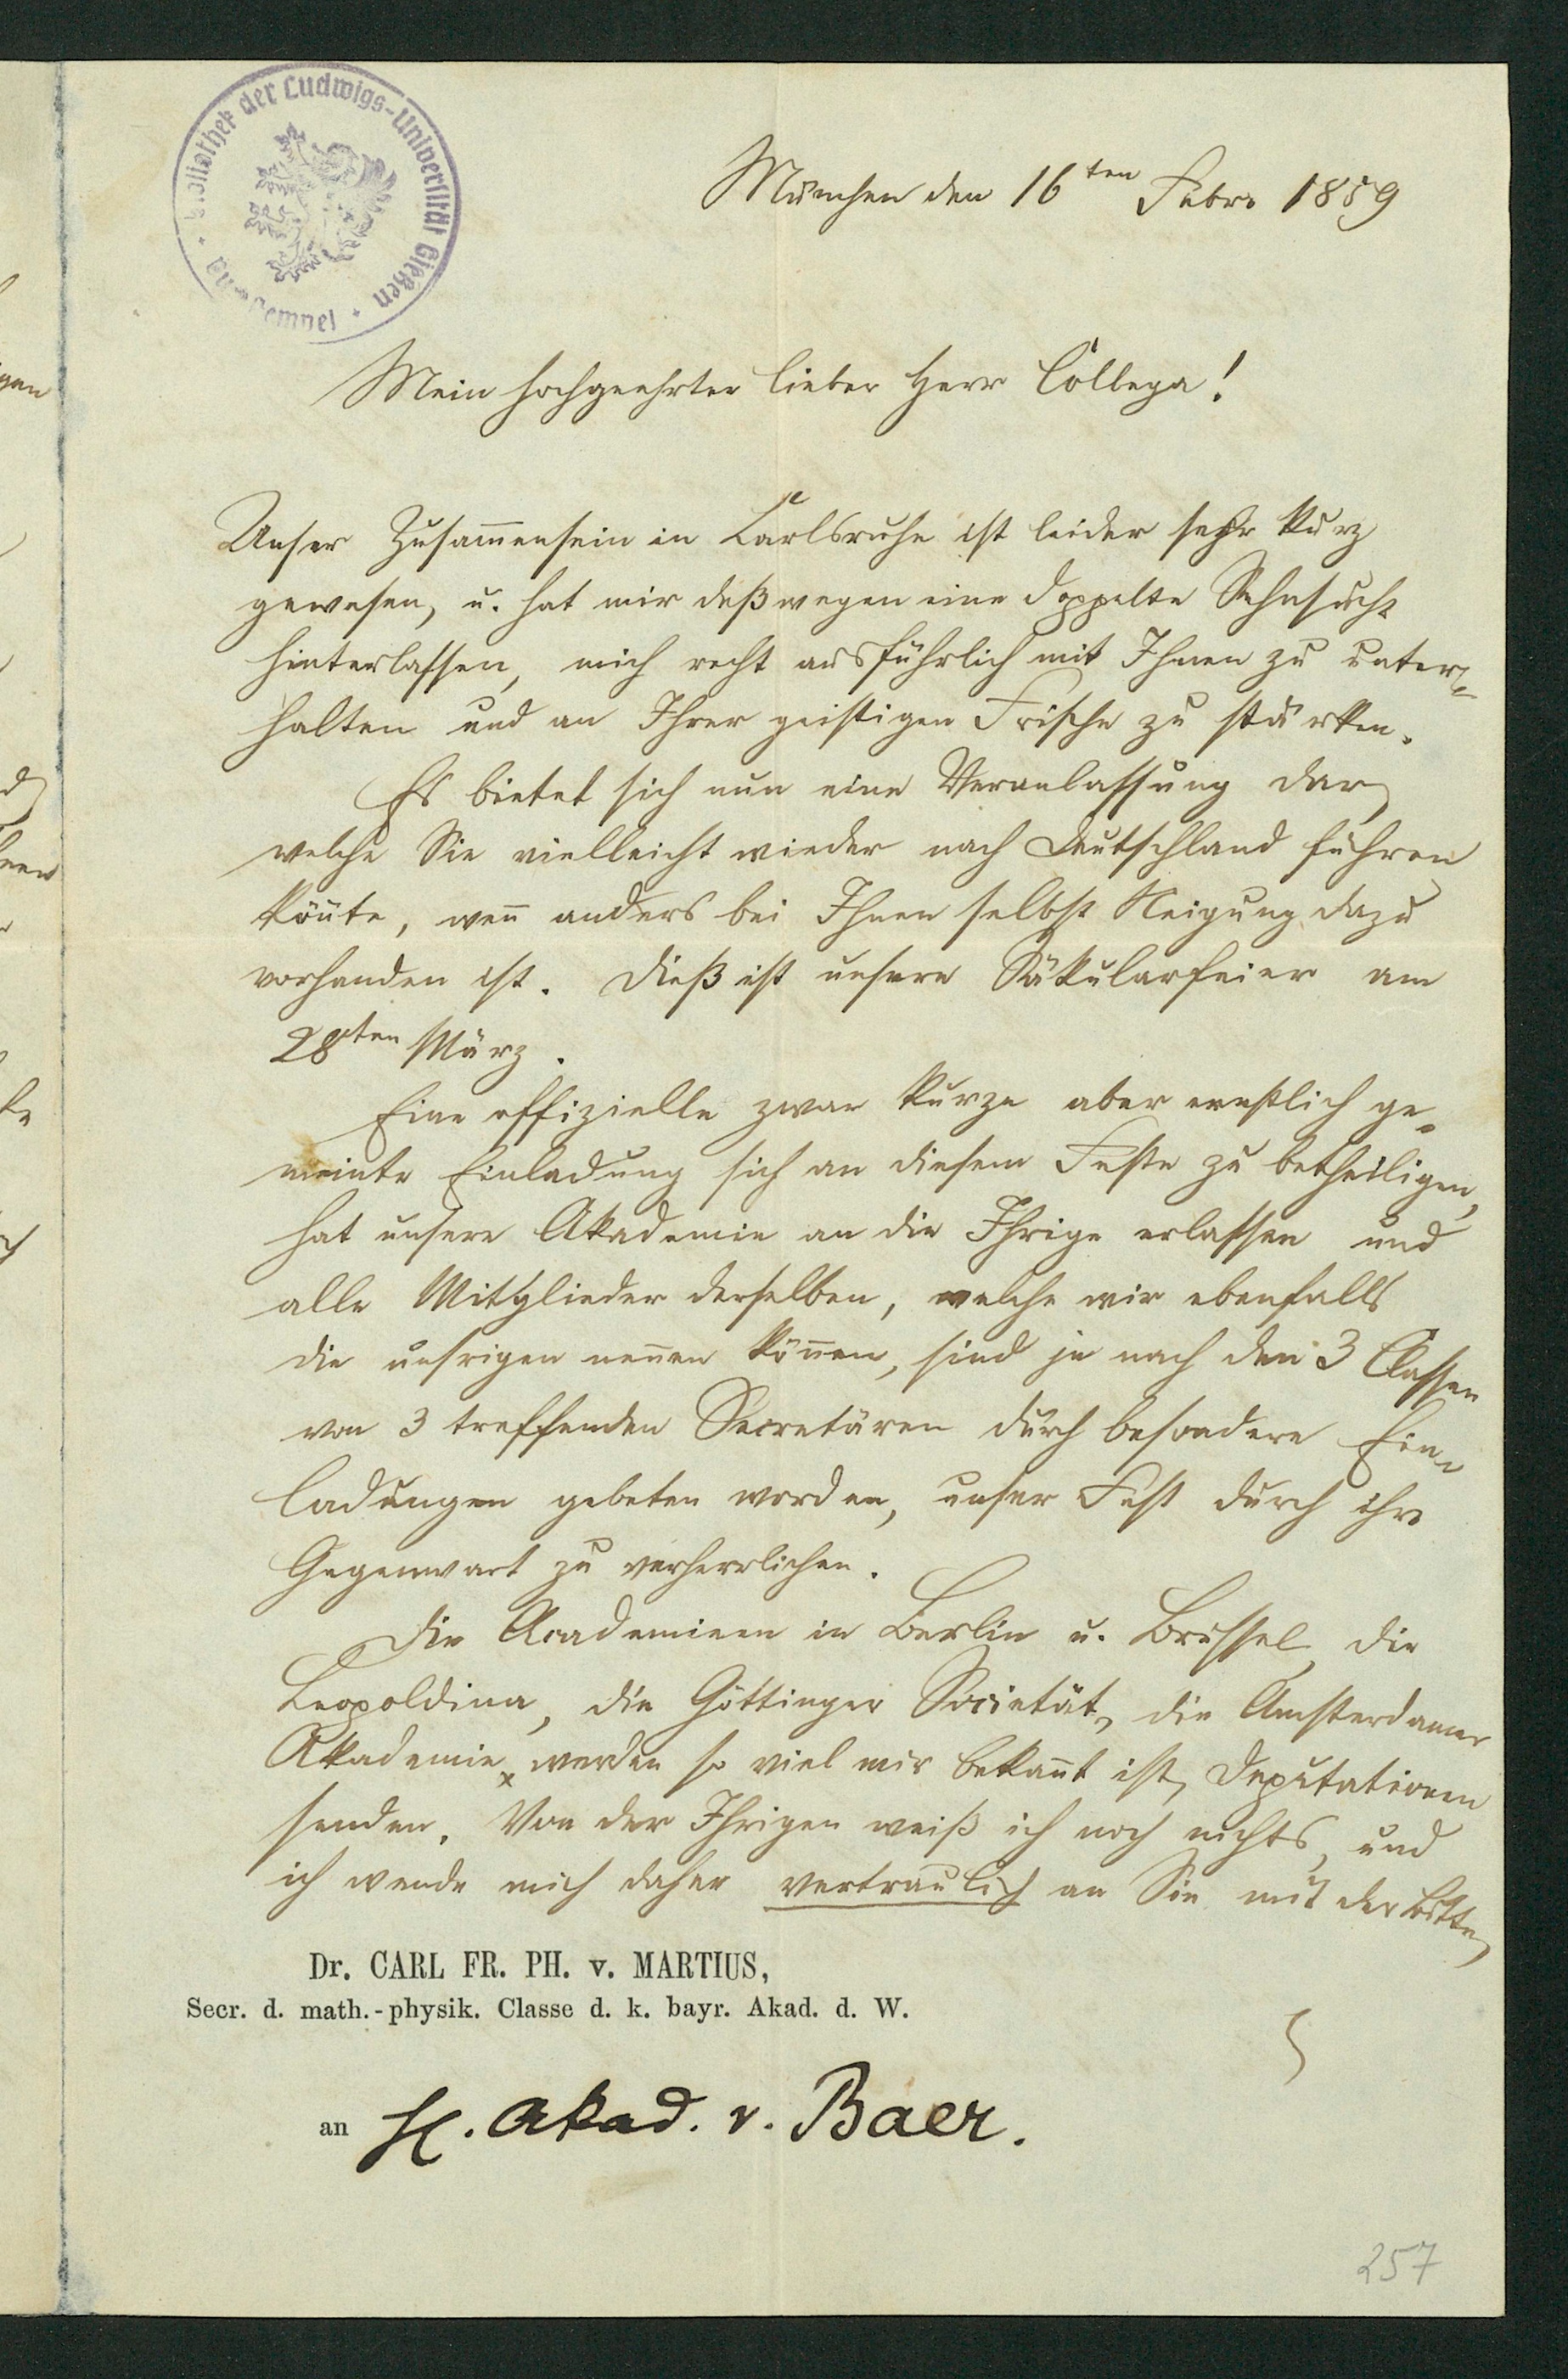 Bibliothek der Ludwigs-Universität Gießen
München den 16ten Febr. 1859
Mein hochgeehrter lieber Herr College!
Unser Zusam̄ensein in Carlsruhe ist leider sehr kurz
gewesen, u. hat mir deßwegen eine doppelte Sehnsucht
hinterlassen, mich recht ausführlich mit Ihnen zu unter=
halten und an Ihrer geistigen Frische zu stärken.
Es bietet sich nun eine Veranlassung dar,
welche Sie vielleicht wieder nach Deutschland führen
kön̄te, wen̄ anders bei Ihnen selbst Neigung dazu
vorhanden ist. Dieß ist unsere Säkularfeier am
28ten März.
Eine offizielle zwar kurze aber ernstlich ge-
meinte Einladung sich an diesem Feste zu betheiligen,
hat unsere Akademie an die Ihrige erlassen und
alle Mitglieder derselben, welche wir ebenfalls
die unsrigen nen̄en kön̄en, sind je nach den 3 Classen
von 3 treffenden Secretären durch besondere Ein-
ladungen gebeten worden, unser Fest durch ihre
Gegenwart zu verherrlichen.
Die Academieen in Berlin u. Brüssel, die
Leopoldina, die Göttinger Societät, die Amsterdamer
Akademie, werden so viel mir bekan̄t ist, Deputationen
senden. Von der Ihrigen weiß ich noch nichts, und
ich wende mich daher vertraulich an Sie mit der Bitte,
Dr. CARL FR. PH. v. MARTIUS,
Secr. d. math.-physik. Classe d. k. bayr. Akad. d. W.
an H. Akad. v. Baer.
257